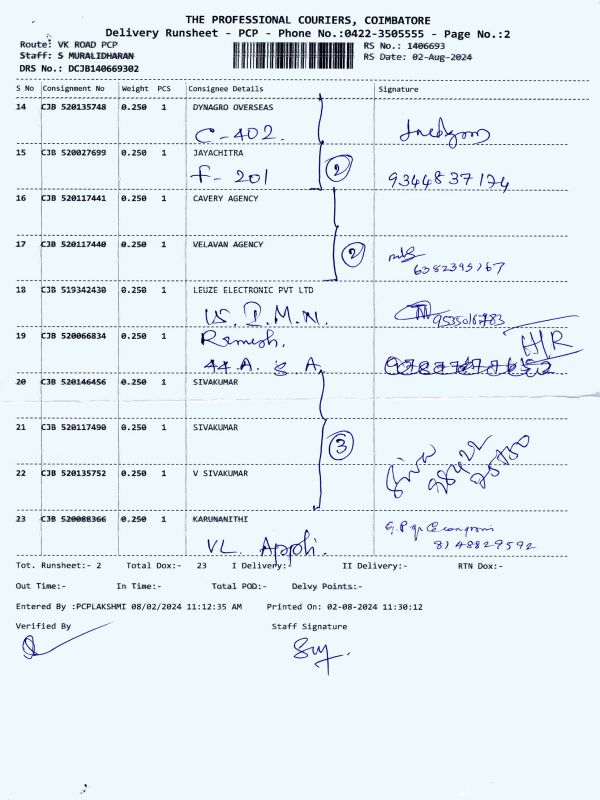 THE PROFESSIONAL COURIERS, COIMBATORE
Delivery Runsheet - PCP - Phone No.:0422-3505555 - Page No.:2
Route: VK ROAD PCP RS No.: 1406693
Staff: S MURALIDHARAN RS Date: 02-Aug-2024
DRS No.: DCJB140669302
S No Consignment No Weight PCS Consignee Details Signature
14 CJB 520135748 0.250 1 DYNAGRO OVERSEAS
C-402.
15 CJB 520027699 0.250 1 JAYACHITRA
F-201 2 9344837174
16 CJB 520117441 0.250 1 CAVERY AGENCY
17 CJB 520117440 0.250 1 VELAVAN AGENCY 2
6382395767
18 CJB 519342430 0.250 1 LEUZE ELECTRONIC PVT LTD
19 CJB 520066834 0.250 1 Ramesh.
44 A. G A.
20 CJB 520146456 0.250 1 SIVAKUMAR
21 CJB 520117490 0.250 1 SIVAKUMAR 3
22 CJB 520135752 0.250 1 V SIVAKUMAR
23 CJB 520088366 0.250 1 KARUNANITHI
VL. Appli. 8148829592
Tot. Runsheet:- 2 Total Dox:- 23 I Delivery:- II Delivery:- RTN Dox:-
Out Time:- In Time:- Total POD:- Delvy Points:-
Entered By :PCPLAKSHMI 08/02/2024 11:12:35 AM Printed On: 02-08-2024 11:30:12
Verified By Staff Signature